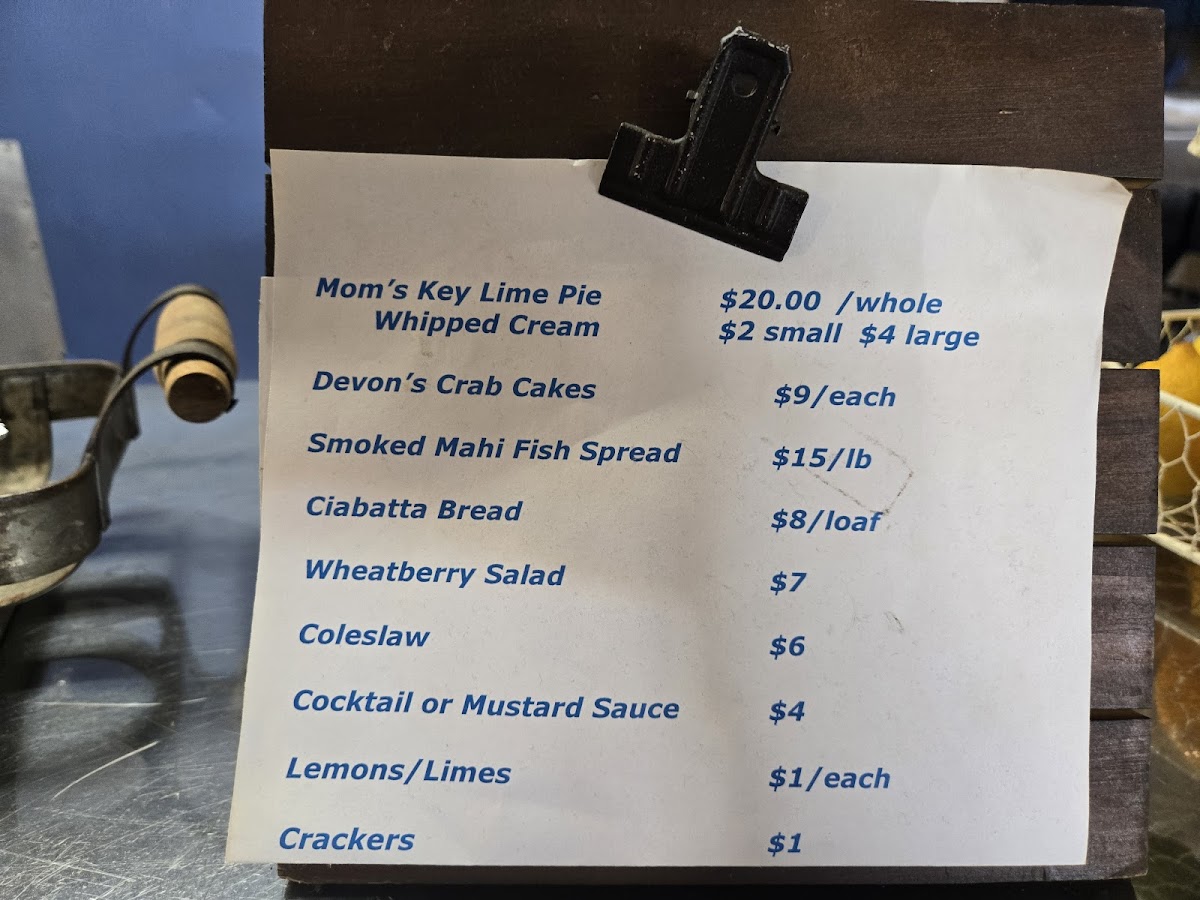 Mom's Key Lime Pie $20.00 /whole
Whipped Cream $2 small $4 large
Devon's Crab Cakes $9/each
Smoked Mahi Fish Spread $15/lb
Ciabatta Bread $8/loaf
Wheatberry Salad $7
Coleslaw $6
Cocktail or Mustard Sauce $4
Lemons/Limes $1/each
Crackers $1